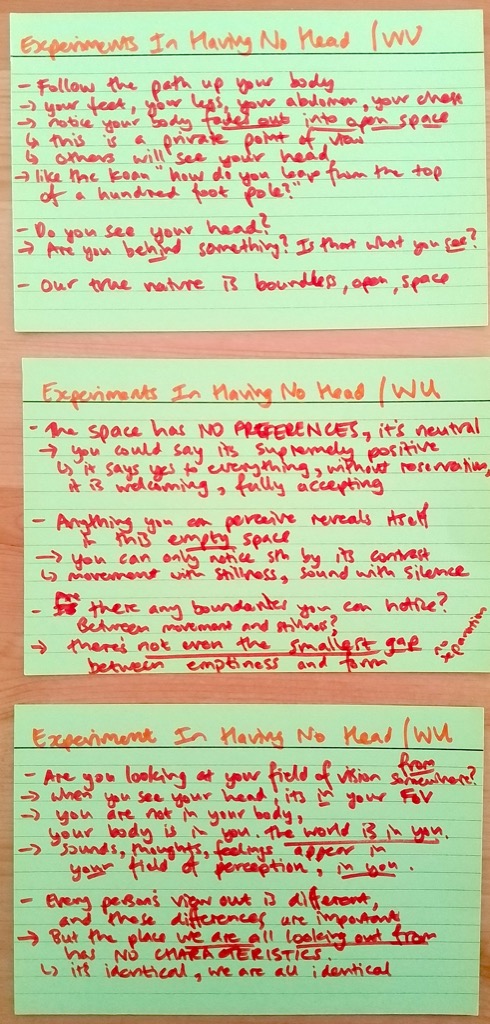 Experiments In Having No Head / WU
- Follow the path up your body
→ your feet, your legs, your abdomen, your chest
→ notice your body fades out into open space
↳ this is a private point of view
↳ others will see your head
→ like the koan "how do you leap from the top
of a hundred foot pole?"
- Do you see your head?
→ Are you behind something? Is that what you see?
- Our true nature is boundless, open, space
Experiments In Having No Head / WU
- The space has NO PREFERENCES, it's neutral
→ you could say its supremely positive
↳ it says yes to everything, without reservation,
it is welcoming, fully accepting
- Anything you can perceive reveals itself
in this empty space
→ you can only notice sth by its contrast
↳ movement with stillness, sound with silence
- Are there any boundaries you can notice?
Between movement and stillness?
→ there's not even the smallest gap
between emptiness and form
no separation
Experiment In Having No Head / WU
- Are you looking at your field of vision from somewhere?
→ when you see your head, its in your FoV
→ you are not in your body,
your body is in you. The world is in you.
→ sounds, thoughts, feelings appear in
your field of perception, in you.
- Every person's view out is different,
and these differences are important
→ But the place we are all looking out from
has NO CHARACTERISTICS.
↳ its identical, we are all identical